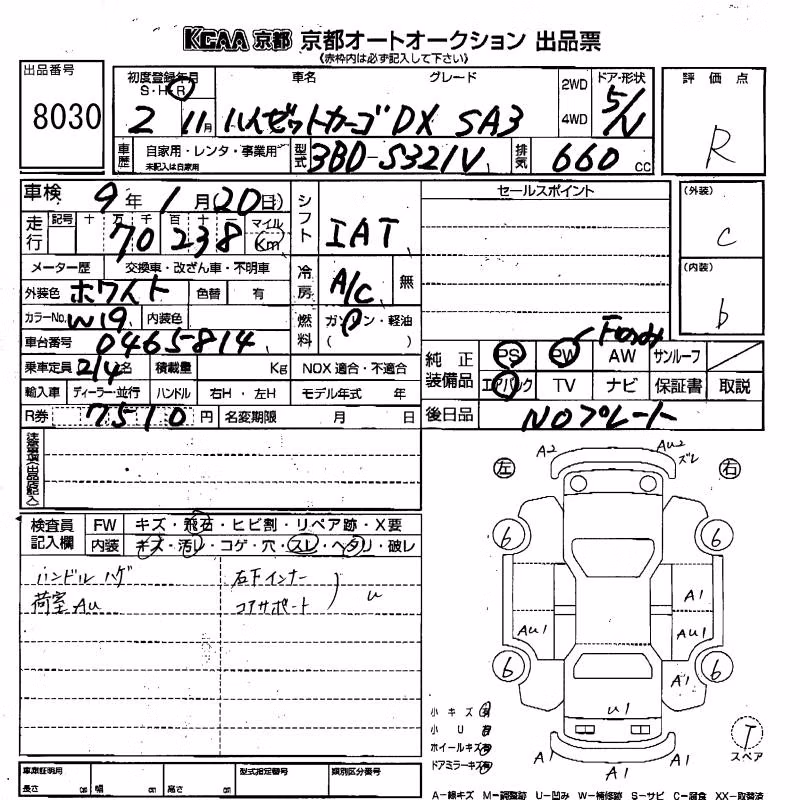 KCAA 京都 京都オートオークション 出品票
(赤枠内は必ず記入して下さい)
出品番号
8030
初度登録年月 車名 グレード 2WD 4WD ドア・形状 評価点
S・H・R
2 11月 ハイゼットカーゴ DX SA3 5/V R
車歴 自家用・レンタ・事業用 型式 3BD-S321V 排気 660 cc
未記入は自家用
車検 9年 1月(20日) シフト IAT セールスポイント (外装)
c
走行 記号 十 万 千 百 十 一 マイル
70238 Km
(内装)
b
メーター歴 交換車・改ざん車・不明車 冷房 A/C 無
外装色 ホワイト 色替 有
カラーNo. W19 内装色 燃料 ガソリン・軽油
( )
車台番号 0465814
乗車定員 2/4名 積載量 Kg NOX 適合・不適合
輸入車 ディーラー・並行 ハンドル 右H・左H モデル年式 年
R券 7510円 名変期限 月 日
純正装備品 PS PW AW サンルーフ
エアバック TV ナビ 保証書 取説
後日品 NOプレート
検査員記入欄 FW キズ・飛石・ヒビ割・リペア跡・X要
内装 キズ・汚レ・コゲ・穴・スレ・ヘタリ・破レ
ハンドル ハゲ 右下インナー
荷室 AU コアサポート U
左 A2 AU2 ズレ 右
6 6
A1
AU1 AU1
6 A1 6
U1
A1 A1 A1
小キズ有
小U有
ホイールキズ有
ドアミラーキズ有
T
スペア
車庫証明用 型式指定番号 類別区分番号
長さ cm 幅 cm 高さ cm
A−線キズ M−調整跡 U−凹み W−補修跡 S−サビ C−腐食 XX−取替済